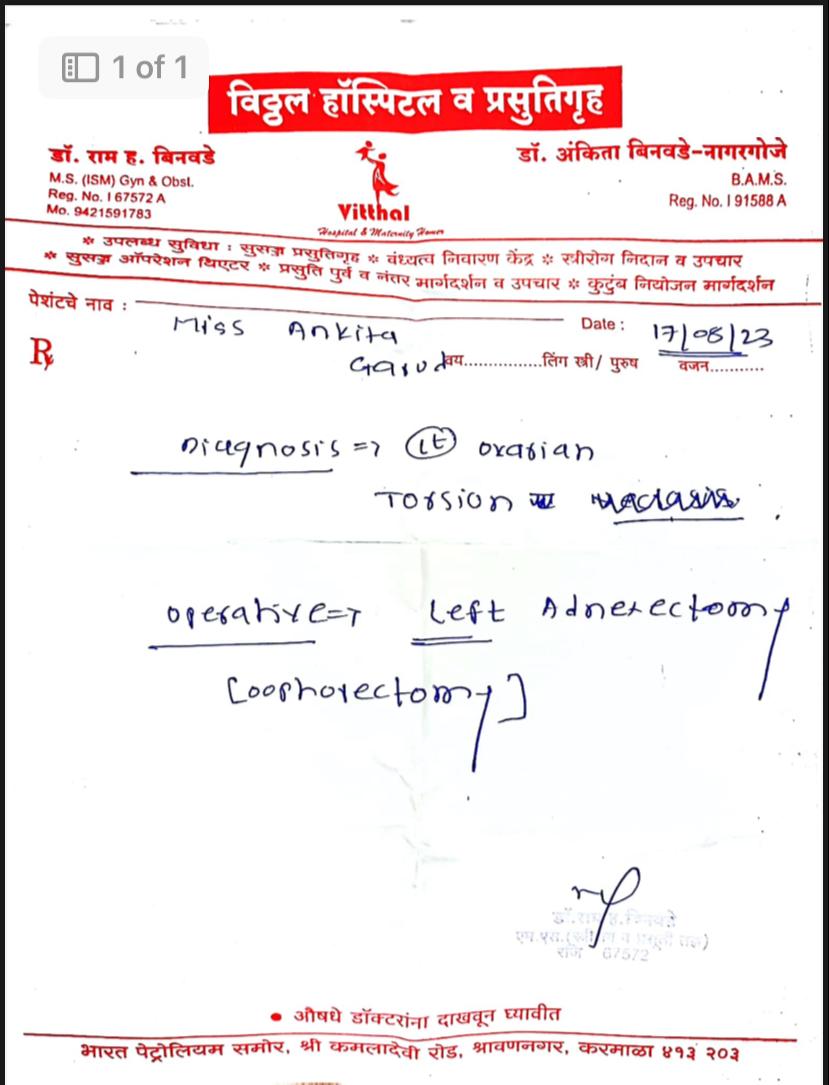 1 of 1
विठ्ठल हॉस्पिटल व प्रसुतिगृह
डॉ. राम ह. बिनवडे
M.S. (ISM) Gyn & Obst.
Reg. No. I 67572 A
Mo. 9421591783
Vitthal
Hospital & Maternity Home
डॉ. अंकिता बिनवडे-नागरगोजे
B.A.M.S.
Reg. No. I 91588 A
* उपलब्ध सुविधा : सुसज्ज प्रसुतिगृह * वंध्यत्व निवारण केंद्र * स्त्रीरोग निदान व उपचार
* सुसज्ज ऑपरेशन थिएटर * प्रसुति पुर्व व नंतर मार्गदर्शन व उपचार * कुटुंब नियोजन मार्गदर्शन
पेशंटचे नाव : Miss Ankita Date : 17/08/23
Rx Garud वय................लिंग स्त्री/ पुरुष वजन...........
Diagnosis => Lt ovarian
Torsion
operative => Left Adnexectomy
[oophorectomy]
डॉ.राम ह.बिनवडे
67572
• औषधे डॉक्टरांना दाखवून घ्यावीत
भारत पेट्रोलियम समोर, श्री कमलादेवी रोड, श्रावणनगर, करमाळा ४१३ २०३